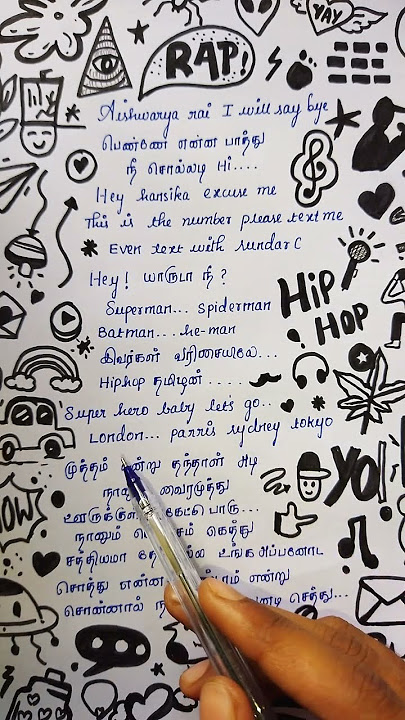 RAP!
YAY
Aishwarya rai I will say bye
பெண்ணே என்ன பாத்து
நீ சொல்லடி Hi....
Hey hansika excuse me
This is the number please text me
Even text with sundar C
Hey! யாருடா நீ ?
Superman... spiderman
Batman... he-man
இவர்கள் வரிசையிலே...
Hiphop தமிழன் .....
HIP HOP
Super hero baby let's go..
London... parris sydney tokyo
முத்தம் ஒன்று தந்தால் அடி
வைரமுத்து
YO!
WOW
கேட்டு பாரு...
நானும் கெத்து
சத்தியமா உங்க அப்பனோட
சொத்து என்ன என்று
சொன்னால் செத்து...